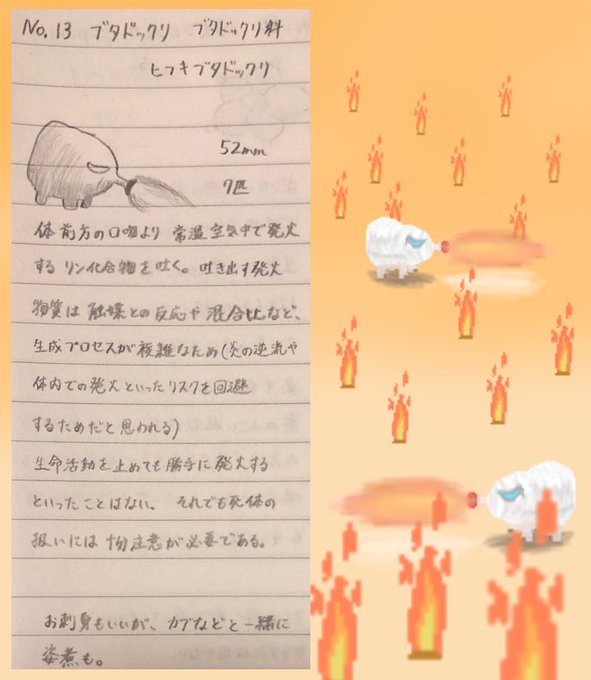 No. 13 ブタドックリ ブタドックリ科
ヒフキブタドックリ
52mm
7匹
体前方の口吻より 常温空気中で発火
するリン化合物を吐く。吐き出す発火
物質は触媒との反応や混合比など、
生成プロセスが複雑なため(炎の逆流や
体内での発火といったリスクを回避
するためだと思われる)
生命活動を止めても勝手に発火する
といったことはない。それでも死体の
扱いには十分注意が必要である。
お刺身もいいが、カブなどと一緒に
姿煮も。